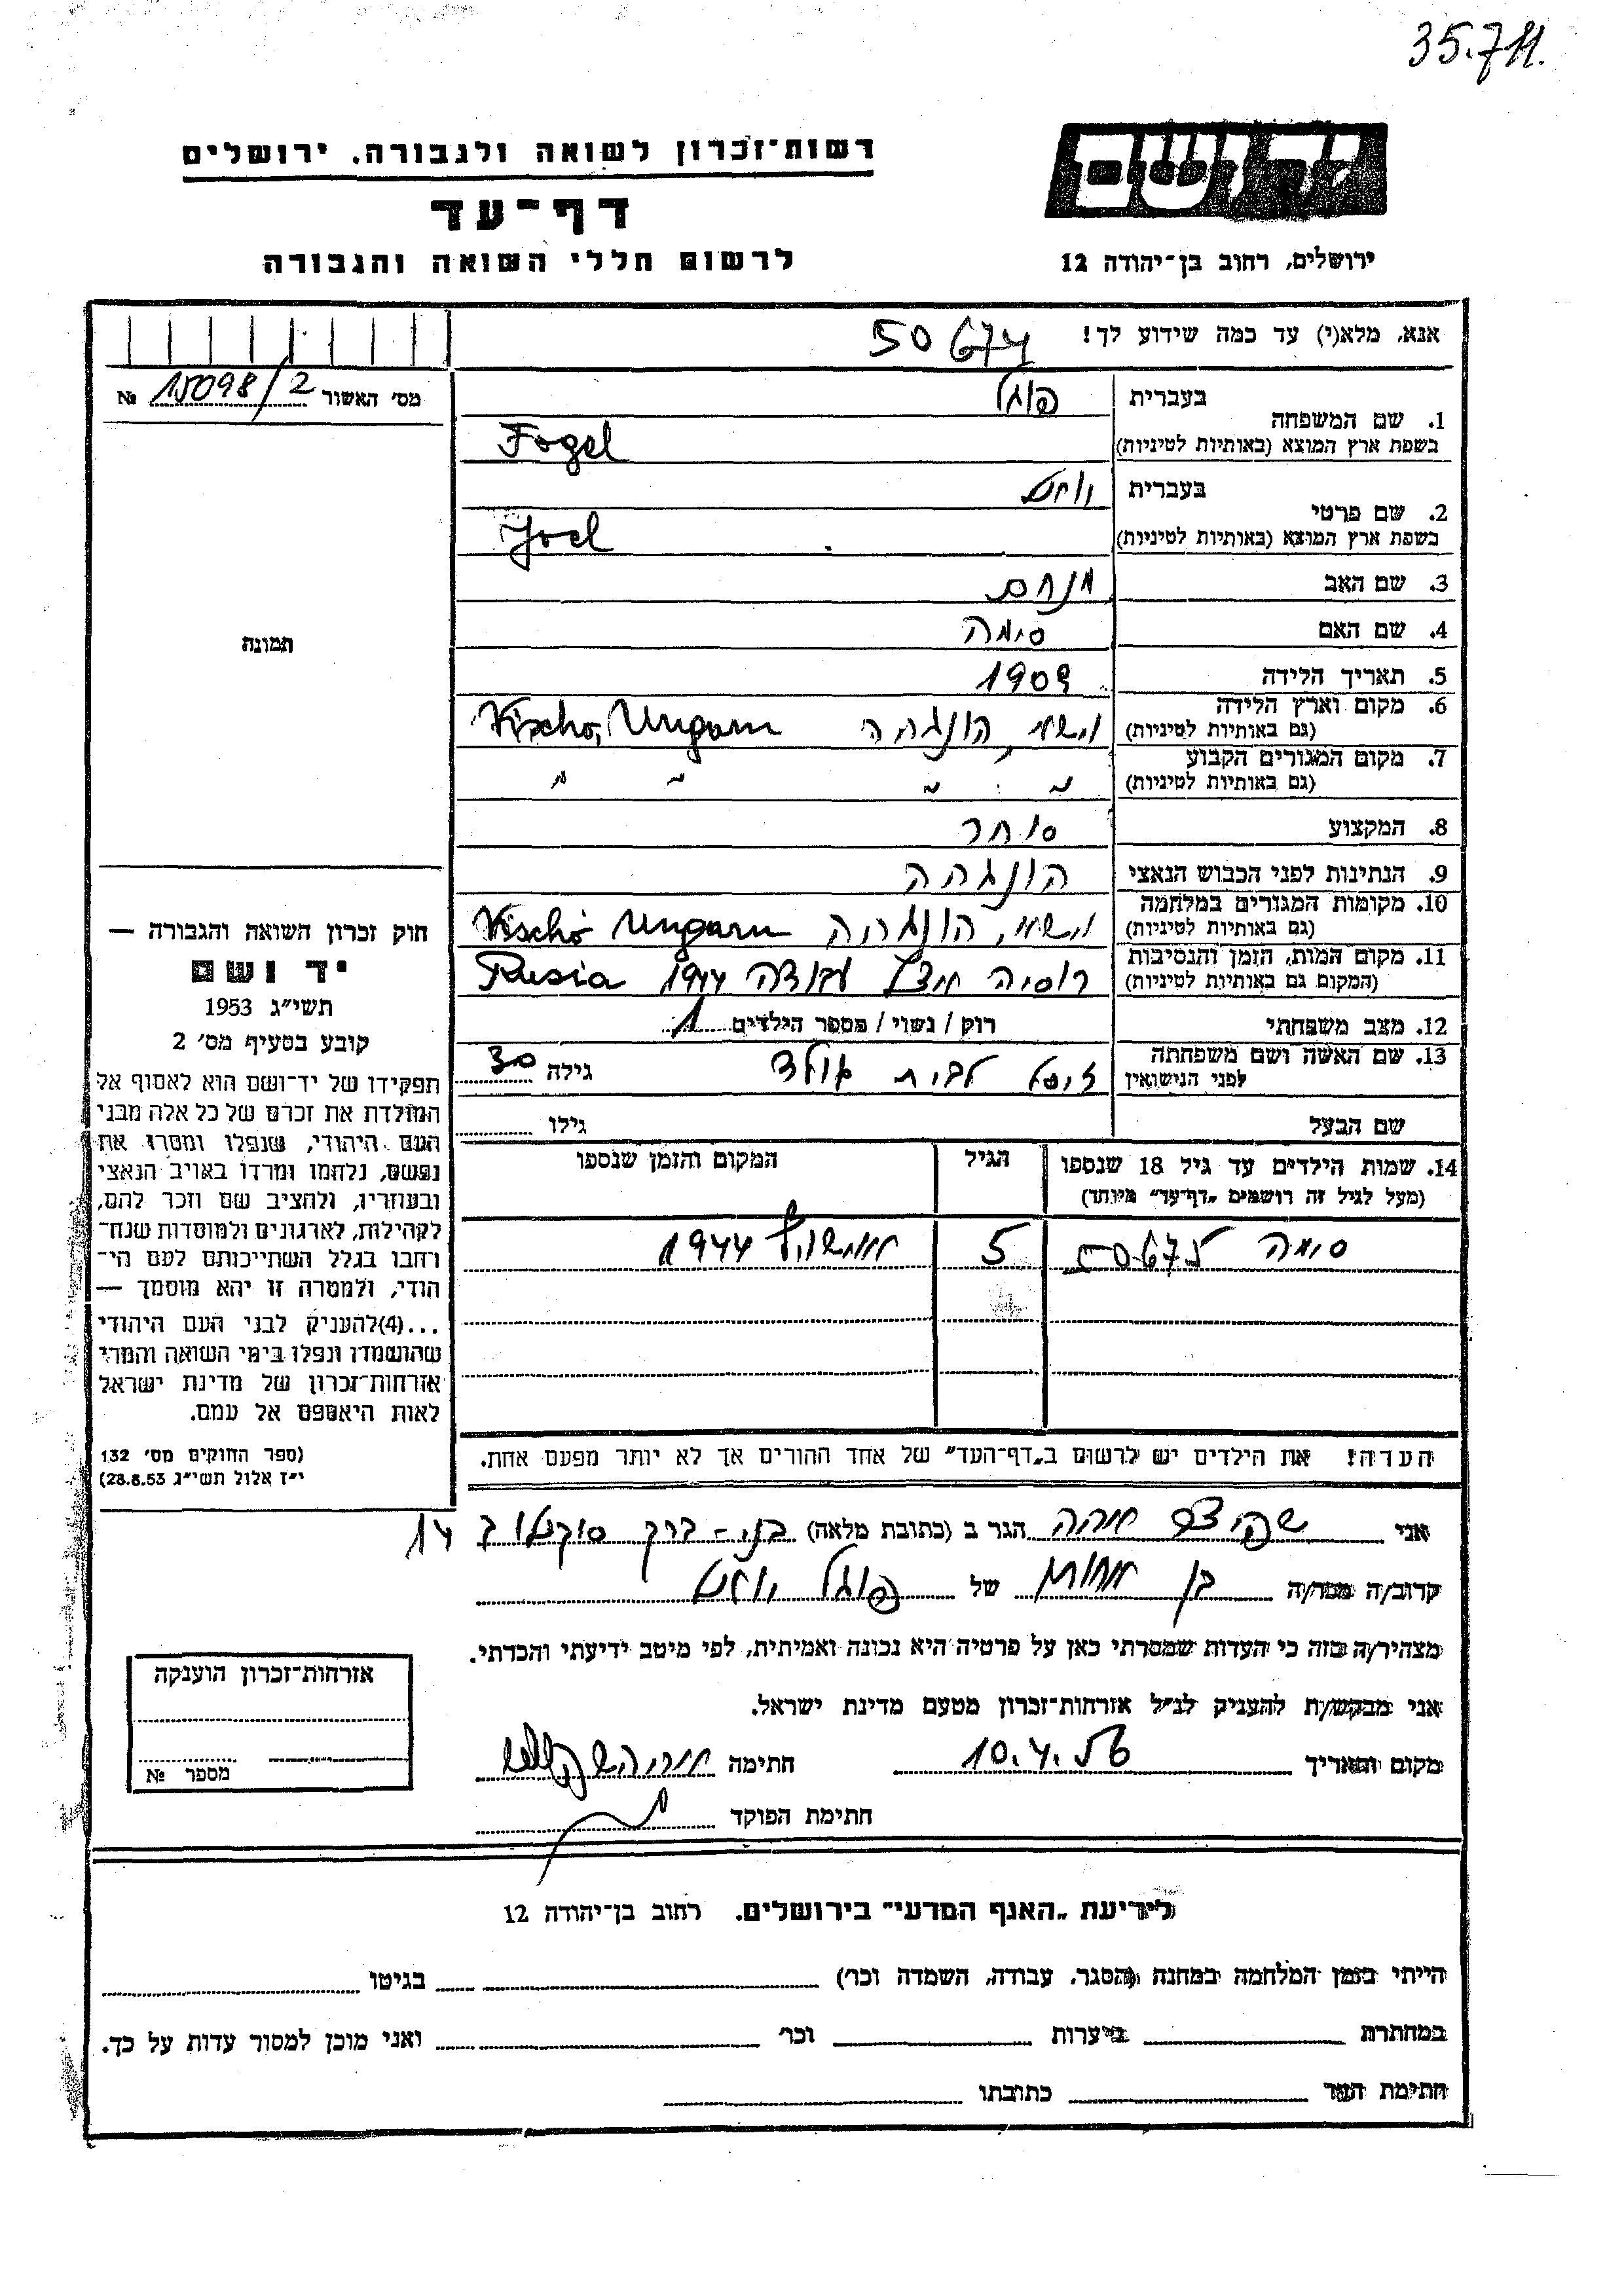 35.711.
רשות־זכרון לשואה ולגבורה. ירושלים
יד ושם
דף־עד
לרשום חללי השואה והגבורה
ירושלים, רחוב בן־יהודה 12
אנא, מלא(י) עד כמה שידוע לך!
50674
מס׳ האשור 15098/2 №
תמונה
1. שם המשפחה
בעברית פוגל
בשפת ארץ המוצא (באותיות לטיניות) Fogel
2. שם פרטי
בעברית
בשפת ארץ המוצא (באותיות לטיניות) Joel
3. שם האב מנחם
4. שם האם סימה
5. תאריך הלידה 1909
6. מקום וארץ הלידה
(גם באותיות לטיניות) הונגריה Vischo, Ungarn
7. מקום המגורים הקבוע
(גם באותיות לטיניות) " " " "
8. המקצוע סוחר
9. הנתינות לפני הכבוש הנאצי הונגריה
10. מקומות המגורים במלחמה
(גם באותיות לטיניות) הונגריה Vischo Ungarn
11. מקום המות, הזמן והנסיבות
(המקום גם באותיות לטיניות) רוסיה עבודה 1944 Rusia
12. מצב משפחתי רוק / נשוי / מספר הילדים 1
13. שם האשה ושם משפחתה
לפני הנישואין לבית גילה 30
שם הבעל גילו
14. שמות הילדים עד גיל 18 שנספו
(מעל לגיל זה רושמים „דף־עד” מיוחד)
הגיל
המקום והזמן שנספו
סימה 50675 5 אושויץ 1944
הערה! את הילדים יש לרשום ב„דף־העד” של אחד ההורים אך לא יותר מפעם אחת.
חוק זכרון השואה והגבורה —
יד ושם
תשי״ג 1953
קובע בסעיף מס׳ 2
תפקידו של יד־ושם הוא לאסוף אל
המולדת את זכרם של כל אלה מבני
העם היהודי, שנפלו ומסרו את
נפשם, נלחמו ומרדו באויב הנאצי
ובעוזריו, ולהציב שם וזכר להם,
לקהילות, לארגונים ולמוסדות שנח־
רבו בגלל השתייכותם לעם הי־
הודי, ולמטרה זו יהא מוסמך —
...(4)להעניק לבני העם היהודי
שהושמדו ונפלו בימי השואה והמרי
אזרחות־זכרון של מדינת ישראל
לאות היאספם אל עמם.
(ספר החוקים מס׳ 132
י״ז אלול תשי״ג 28.8.53)
אני הגר ב (כתובת מלאה) בני-ברק סוקולוב 14
קרוב/ה מכר/ה בן אחות של פוגל
מצהיר/ה בזה כי העדות שמסרתי כאן על פרטיה היא נכונה ואמיתית, לפי מיטב ידיעתי והכרתי.
אני מבקש/ת להעניק לנ״ל אזרחות־זכרון מטעם מדינת ישראל.
מקום ותאריך 10.4.56 חתימה
חתימת הפוקד
אזרחות־זכרון הוענקה
מספר №
לידיעת „האגף המדעי” בירושלים. רחוב בן־יהודה 12
הייתי בזמן המלחמה במחנה (הסגר, עבודה, השמדה וכר׳) בגיטו
במחתרת ביערות וכר׳ ואני מוכן למסור עדות על כך.
חתימת העד כתובתו